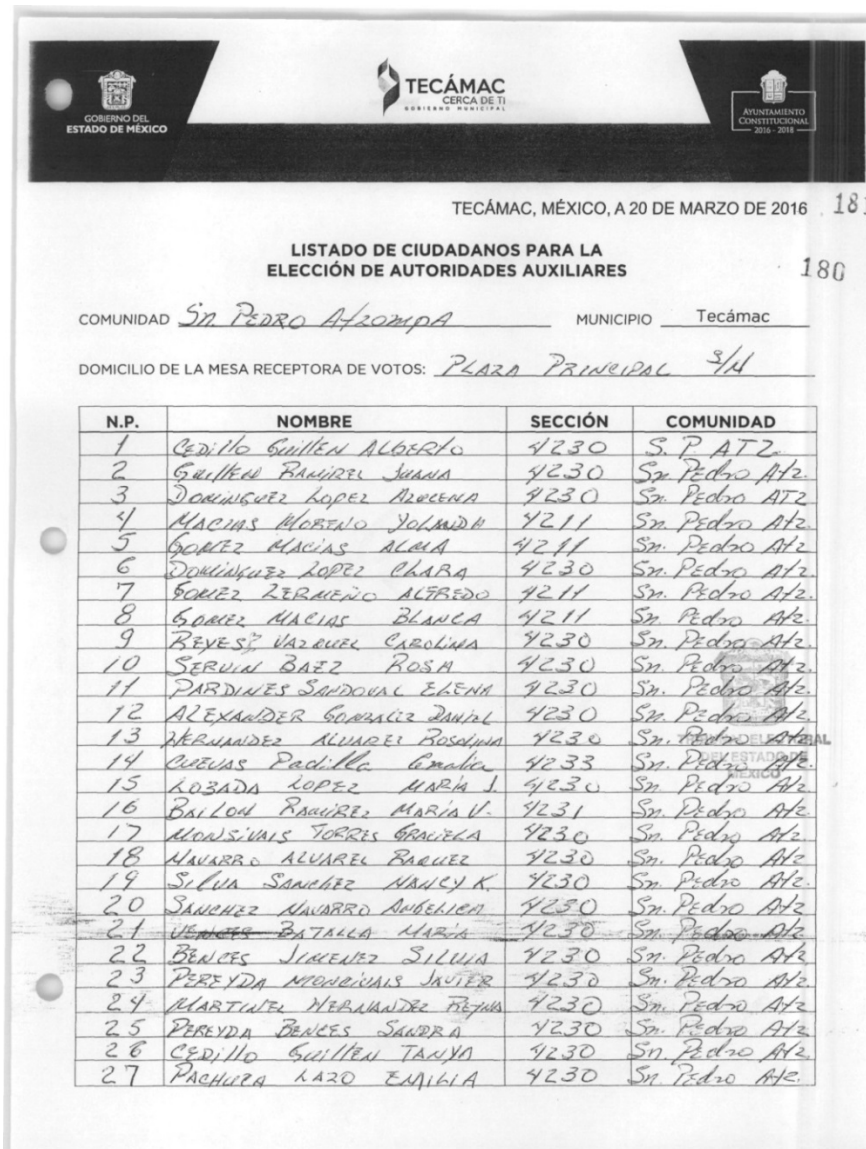 GOBIERNO DEL
ESTADO DE MÉXICO
TECÁMAC
CERCA DE TI
GOBIERNO MUNICIPAL
AYUNTAMIENTO
CONSTITUCIONAL
2016 - 2018
TECÁMAC, MÉXICO, A 20 DE MARZO DE 2016
LISTADO DE CIUDADANOS PARA LA
ELECCIÓN DE AUTORIDADES AUXILIARES
180
COMUNIDAD Sn. PEDRO AtzompA MUNICIPIO Tecámac
DOMICILIO DE LA MESA RECEPTORA DE VOTOS: PLAZA PRINCIPAL S/N
N.P. NOMBRE SECCIÓN COMUNIDAD
1 CEDillo GuillEN ALBERto 4230 S. P. ATZ.
2 GuillEN RAMIREZ JUANA 4230 Sn. PEdro Atz.
3 DOMINGUEZ LOPEZ AZUCENA 4230 Sn. PEdro ATZ
4 MACIAS MORENO YOLANDA 4211 Sn. PEdro Atz.
5 GOMEZ MACIAS ALMA 4211 Sn. PEdro Atz.
6 DOMINGUEZ LOPEZ CLARA 4230 Sn. PEdro Atz.
7 GOMEZ ZERMEÑO ALFREDO 4211 Sn. PEdro Atz.
8 GOMEZ MACIAS BLANCA 4211 Sn. PEdro Atz.
9 REYES VAZQUEZ CAROLINA 4230 Sn. PEdro Atz.
10 SERVIN BAEZ ROSA 4230 Sn. PEdro Atz.
11 PARDINES SANDOVAL ELENA 4230 Sn. PEdro Atz.
12 ALEXANDER GONZALEZ DANIEL 4230 Sn. PEdro Atz.
13 HERNANDEZ ALVAREZ 4230 Sn. PEdro Atz.
14 CUEVAS Padilla 4233 Sn. PEdro Atz.
15 LOZADA LOPEZ MARÍA J. 4230 Sn. PEdro Atz
16 BAILON RAMIREZ MARÍA V. 4231 Sn. PEdro Atz.
17 MONSIVAIS TORRES GRACIELA 4230 Sn. PEdro Atz.
18 NAVARRO ALVAREZ RAQUEL 4230 Sn. PEdro Atz.
19 SILVA SANCHEZ NANCY K. 4230 Sn. PEdro Atz.
20 SANCHEZ NAVARRO ANGELICA 4230 Sn. PEdro Atz
21 BATALLA MARÍA 4230 Sn. PEdro Atz
22 BENCES JIMENEZ SILVIA 4230 Sn. PEdro Atz
23 PEREYDA MONCIVAIS JAVIER 4230 Sn. PEdro Atz
24 MARTINEZ HERNANDEZ REYNA 4230 Sn. PEdro Atz
25 PEREYDA BENCES SANDRA 4230 Sn. PEdro Atz
26 CEDillo GuillEN TANYA 4230 Sn. PEdro Atz.
27 PACHUCA LAZO EMILIA 4230 Sn. PEdro Atz.
DEL ESTADO DE
MÉXICO